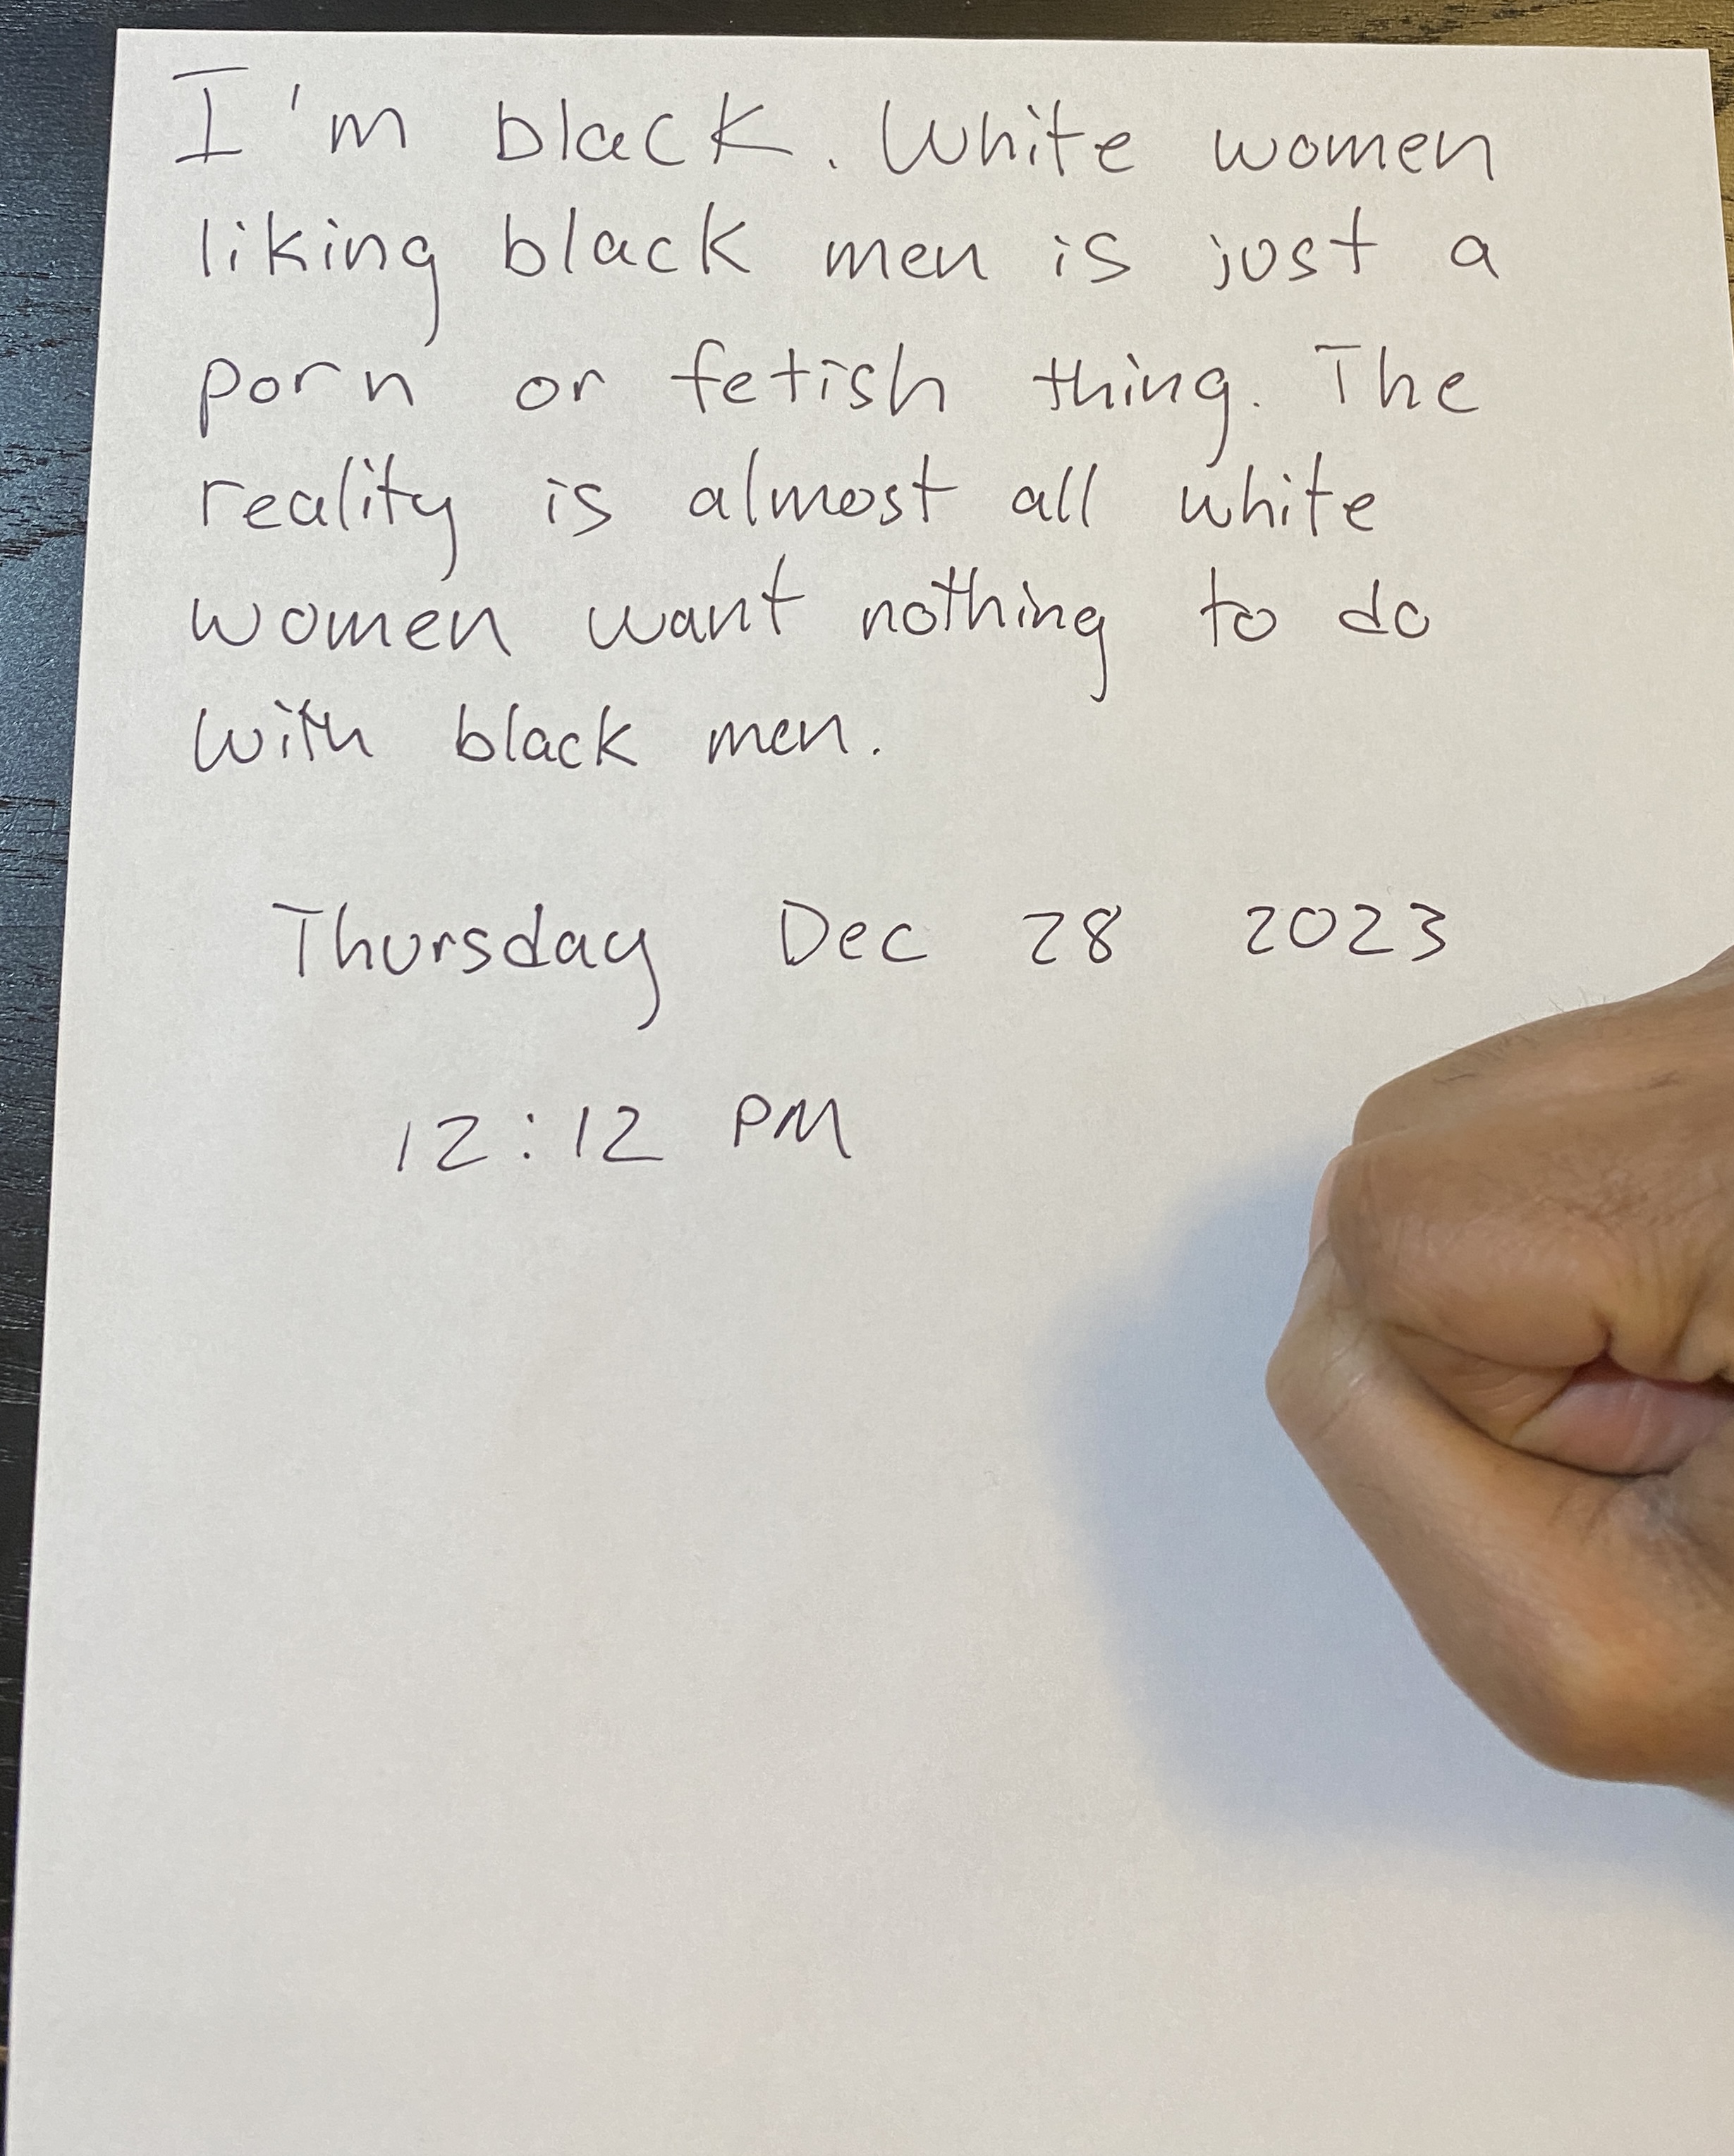 I'm black. White women
liking black men is just a
porn or fetish thing. The
reality is almost all white
women want nothing to do
with black men.
Thursday Dec 28 2023
12:12 PM